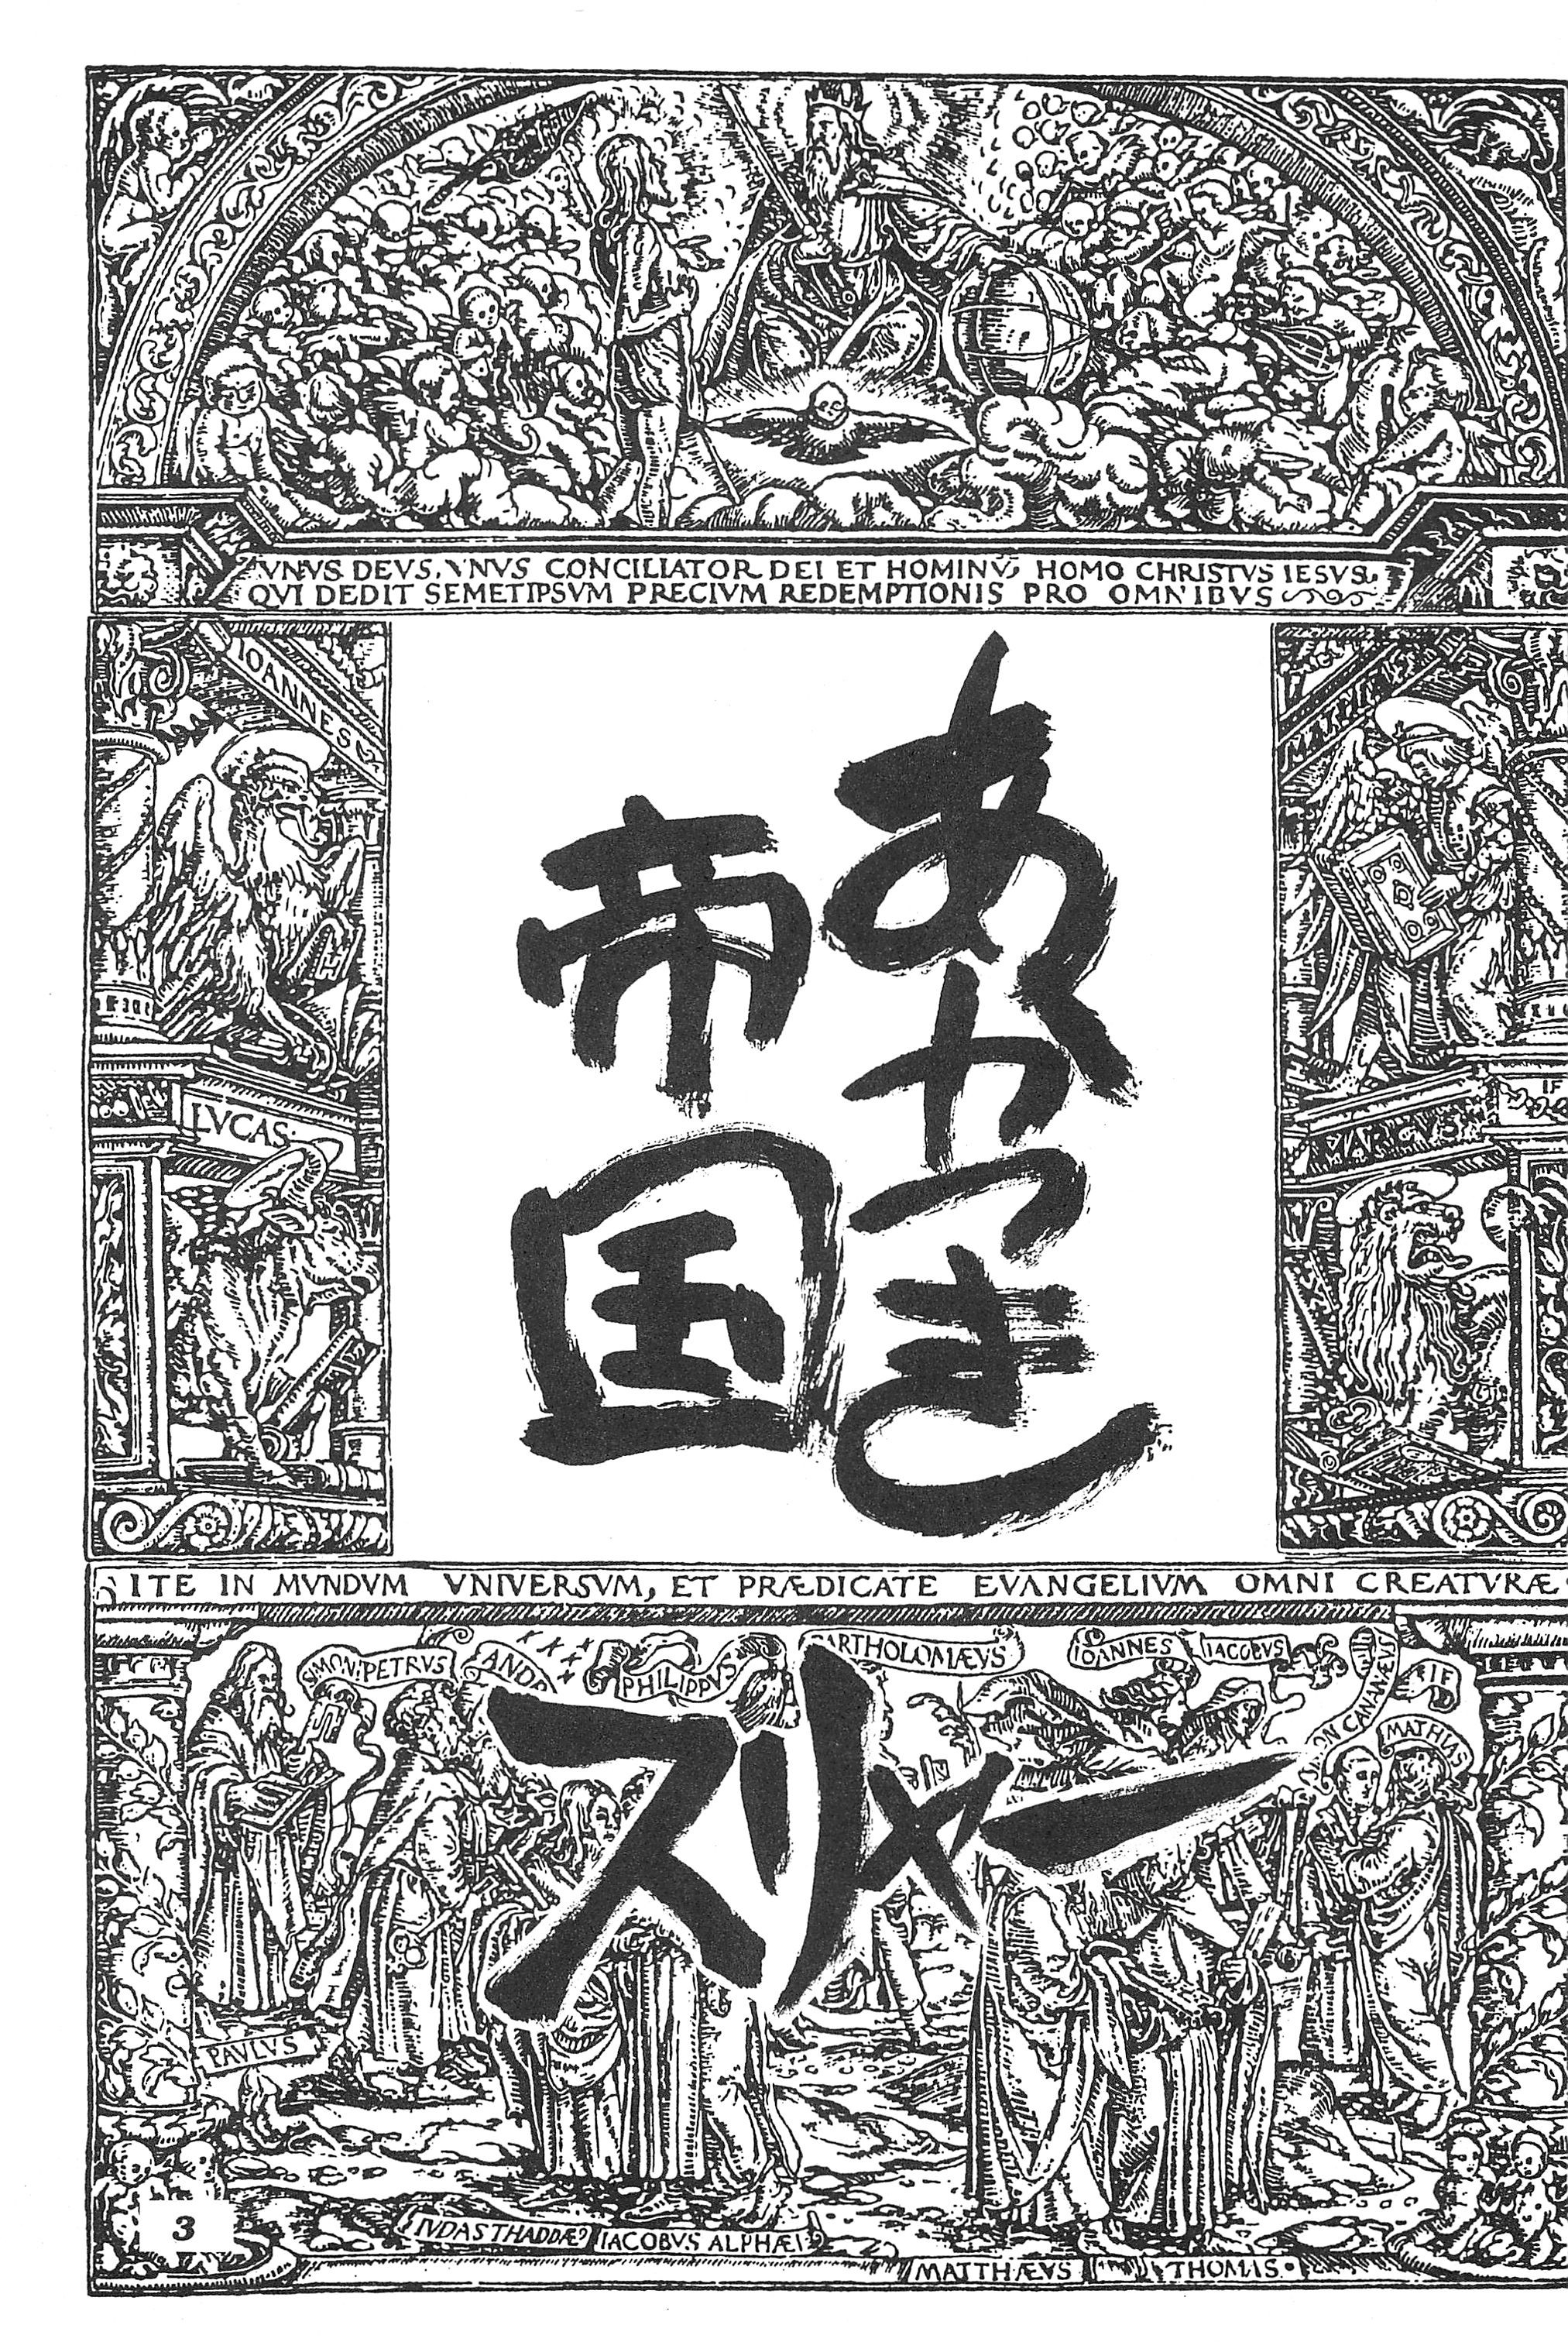 VNVS DEVS, VNVS CONCILIATOR DEI ET HOMINV̄, HOMO CHRISTVS IESVS
QVI DEDIT SEMETIPSVM PRECIVM REDEMPTIONIS PRO OMNIBVS
IOANNES
LVCAS
MARCVS
あかつき
帝国
ITE IN MVNDVM VNIVERSVM, ET PRÆDICATE EVANGELIVM OMNI CREATVRÆ
SIMON PETRVS
ANDR
PHILIPPVS
BARTHOLOMÆVS
IOANNES
IACOBVS
ON CANANÆVS
MATHIAS
スリメー
PAVLVS
IVDAS THADDÆ9
IACOBVS ALPHÆI
MATTHÆVS
THOMAS
3